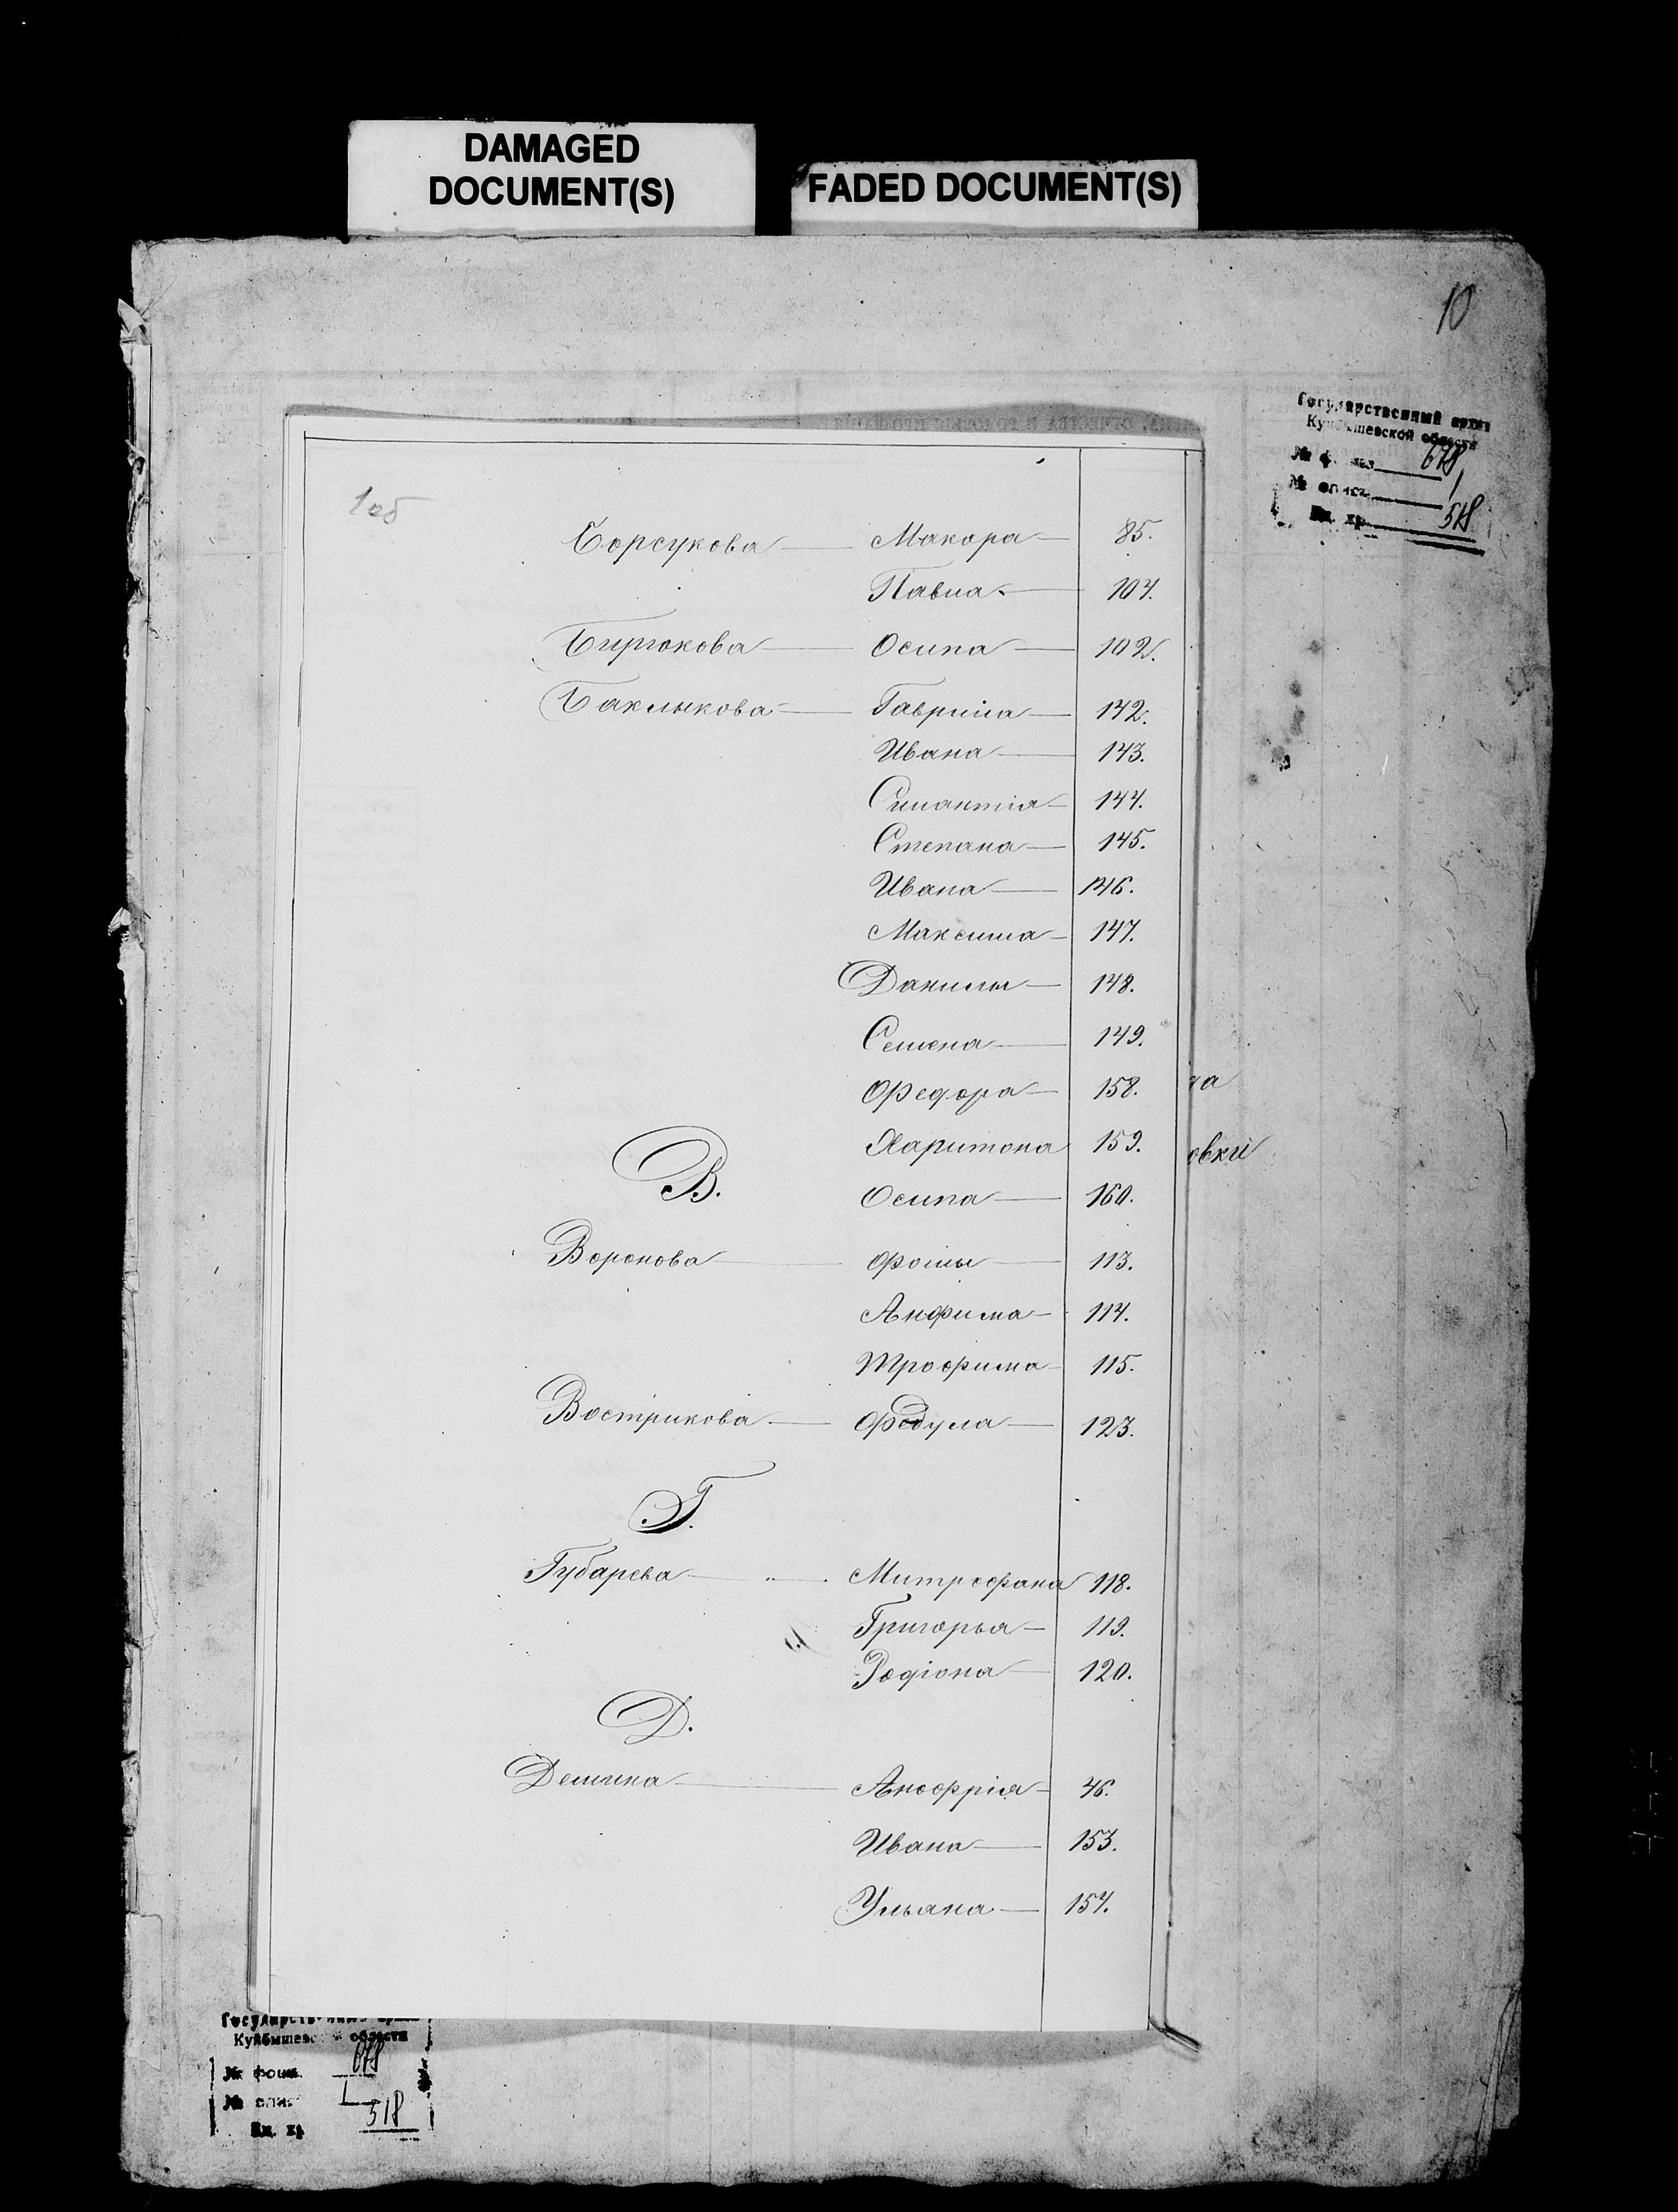 DAMAGED
DOCUMENT(S)
FADED DOCUMENT(S)
10
Государственный архив
Куйбышевской области
№ фонда 678
№ описи 1
Ед. хр. 518
1об
Борсукова Макора 85.
Павла 104.
Бирюкова Осипа 102.
Баклыкова Гаврила 142.
Ивана 143.
Силантія 144.
Степана 145.
Ивана 146.
Максима 147.
Данилы 148.
Семена 149.
Федора 158.
Харитона 159.
В.
Осипа 160.
Воронова Фомы 113.
Анфима 114.
Трофима 115.
Вострикова Федула 123.
Г.
Губарева Митрофана 118.
Григорья 119.
Родіона 120.
Д.
Демина Анофрія 46.
Ивана 153.
Ульана 154.
овки
Государственный архив
Куйбышевской области
№ фонд. 678
№ опис 1
Ед. хр 518